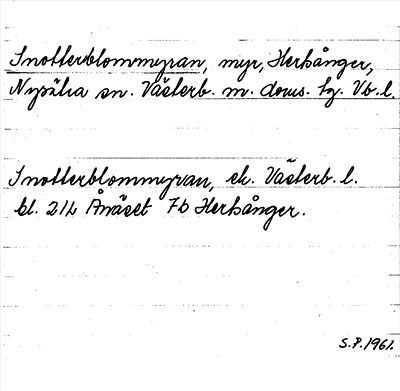 Snotterblommyran, myr, Herrånger,
Nysätra sn. Västerb. m. doms. tg. Vb. l.
Snotterblommyran, ek. Västerb. l.
bl. 21L Ånäset 7b Herrånger.
S.P. 1961.